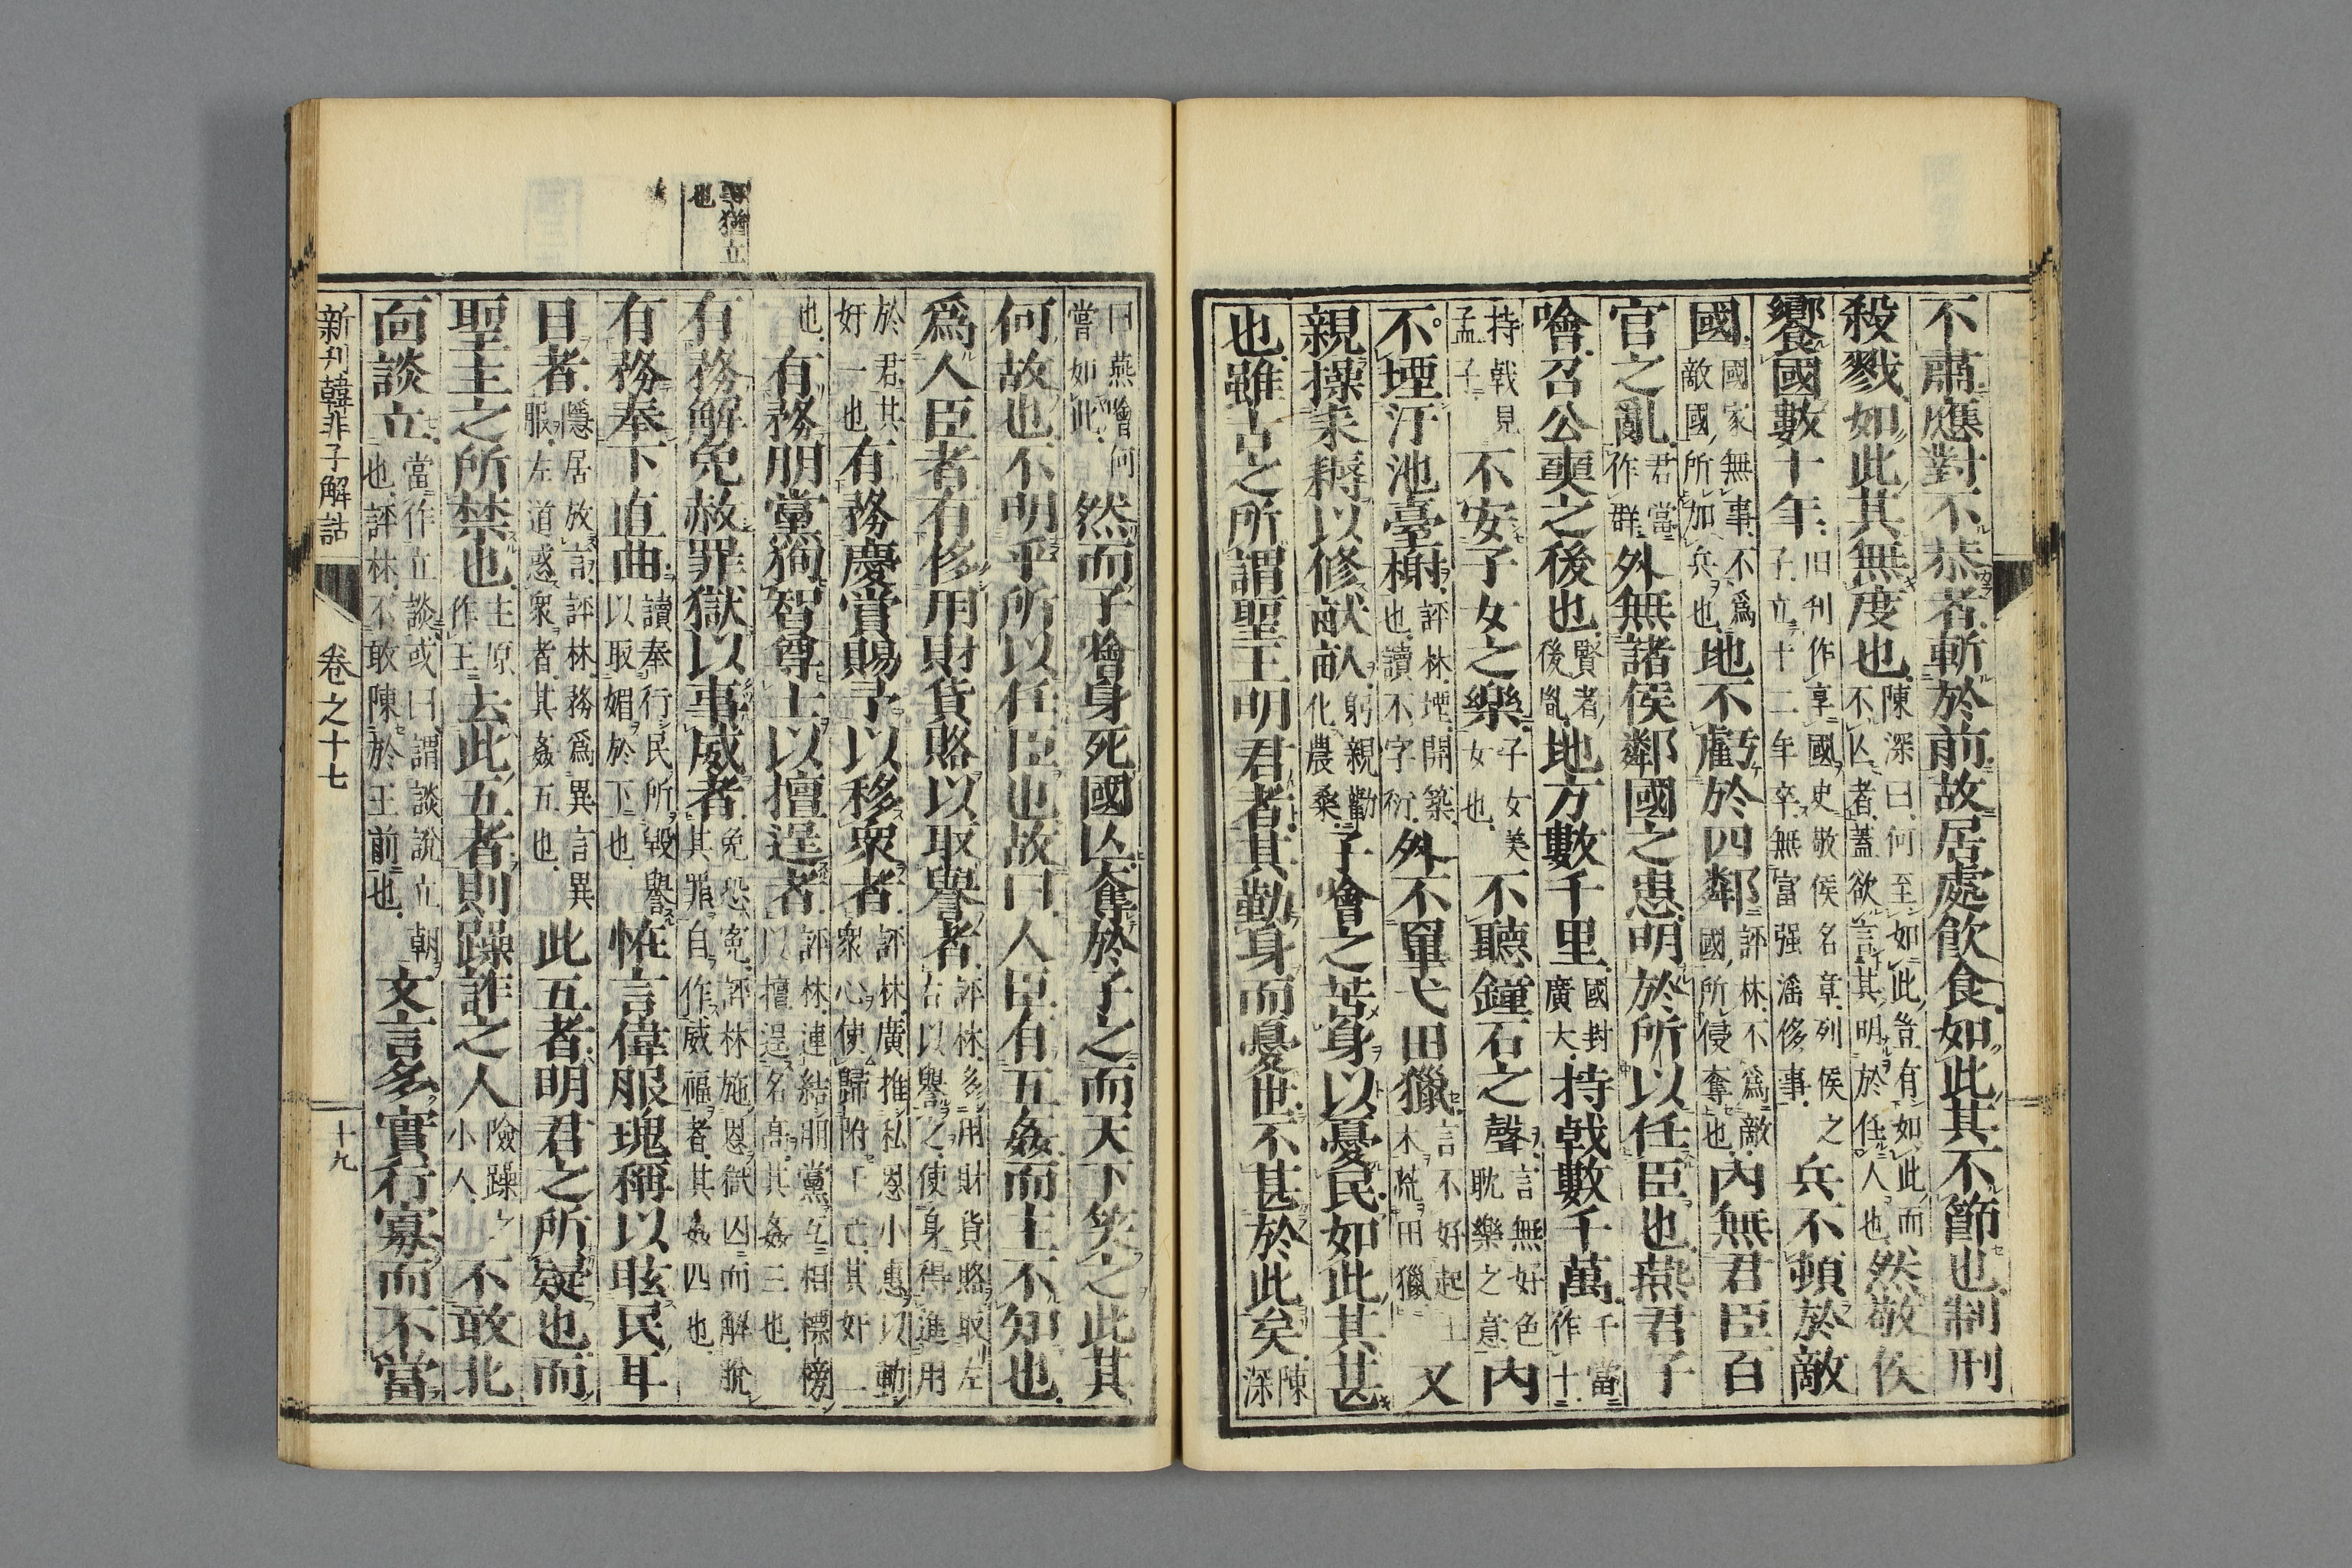 不肅應對不恭者斬於前故居處飲食如此其不節也制刑
殺戮如此其無度也陳深曰何至如此豈有如此而不亾者蓋欲言其明於任人也然敬侯
饗國數十年旧刊作享國史敬侯名章列侯之子立十二年卒無富强滛侈事兵不頓於敵
國國家無事不爲敵國所加兵也地不虧於四鄰評林不爲敵國所侵奪也內無君臣百
官之亂君當作群外無諸侯鄰國之患明於所以任臣也燕君子
噲召公奭之後也賢者後胤地方數千里國對廣大持戟數千萬千當作十
持戟見孟子不安子女之樂子女美女也不聽鐘石之聲言無好色耽樂之意內
不堙汙池臺榭評林堙開築也讀不字衍外不單弋田獵言不好起土木荒田獵又
親操耒耨以修畎畝躬親勸化農桑子噲之苦身以憂民如此其甚
也雖古之所謂聖王明君者其勤身而憂世不甚於此矣陳深
曰燕噲何嘗如此然而子噲身死國亾奪於子之而天下笑之此其
何故也不明乎所以任臣也故曰人臣有五姦而主不知也
爲人臣者有侈用財貨賂以取譽者評林多用財貨賂取左右以譽之使身得進用
於君其奸一也有務慶賞賜予以移衆者評林廣推私恩小惠以動衆心使歸附于己其奸二
也有務朋黨狥智尊士以擅逞者評林連結朋黨互相標榜以擅逞名高其姦三也
有務解免赦罪獄以事威者免恐寃評林施恩獄囚而解脫其罪自作威福者其姦四也
有務奉下直曲讀奉行民所毀譽以取媚於下也恠言偉服瑰稱以眩民耳
目者隱居放言評林務爲異言異服左道惑衆者其姦五也此五者明君之所疑也而
聖主之所禁也主原作王去此五者則躁詐之人險躁小人不敢北
面談立當作立談或曰謂談說立朝也評林不敢陳於王前也文言多實行寡而不當
事猶立也
新刊韓非子解詁
卷之十七
十九